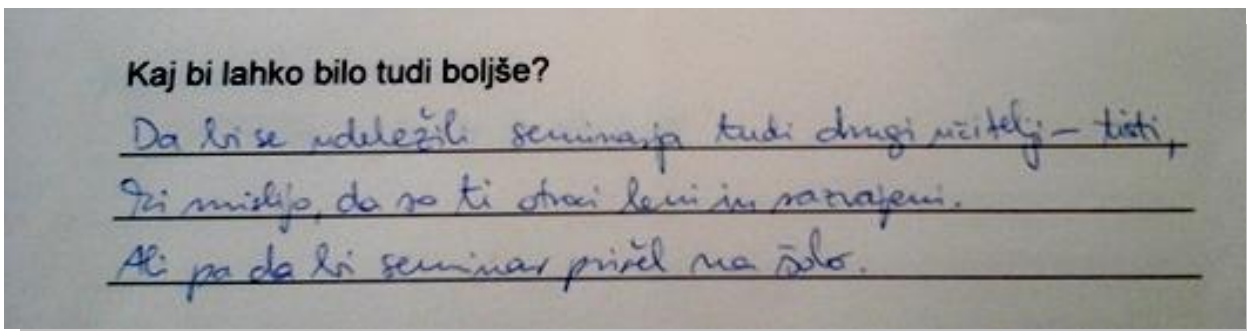 Kaj bi lahko bilo tudi boljše?
Da bi se udeležili seminarja tudi drugi učitelji – tisti,
ki mislijo, da so ti otroci leni in razvajeni.
Ali pa da bi seminar prišel na šolo.